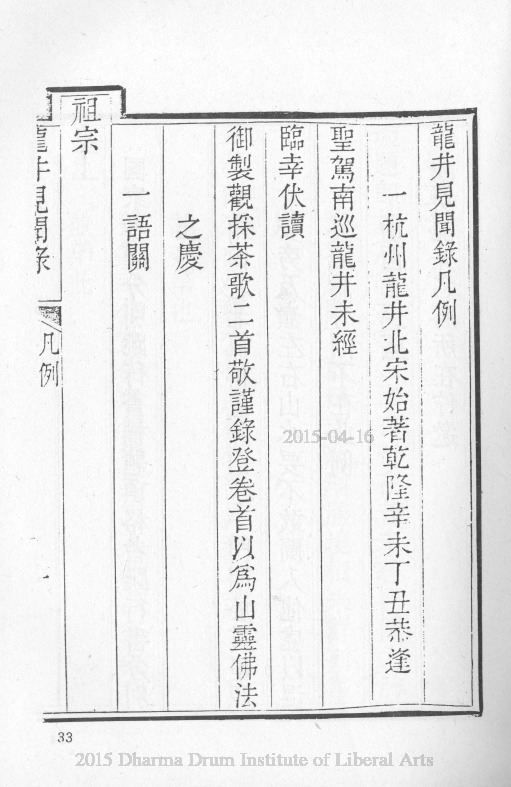 龍井見聞錄凡例
一杭州龍井北宋始著乾隆辛未丁丑恭逢
聖駕南巡龍井未經
臨幸伏讀
御製觀採茶歌二首敬謹錄登卷首以爲山靈佛法
之慶
一語關
祖宗
龍井見聞錄
凡例
一
33
2015-04-16
2015 Dharma Drum Institute of Liberal Arts